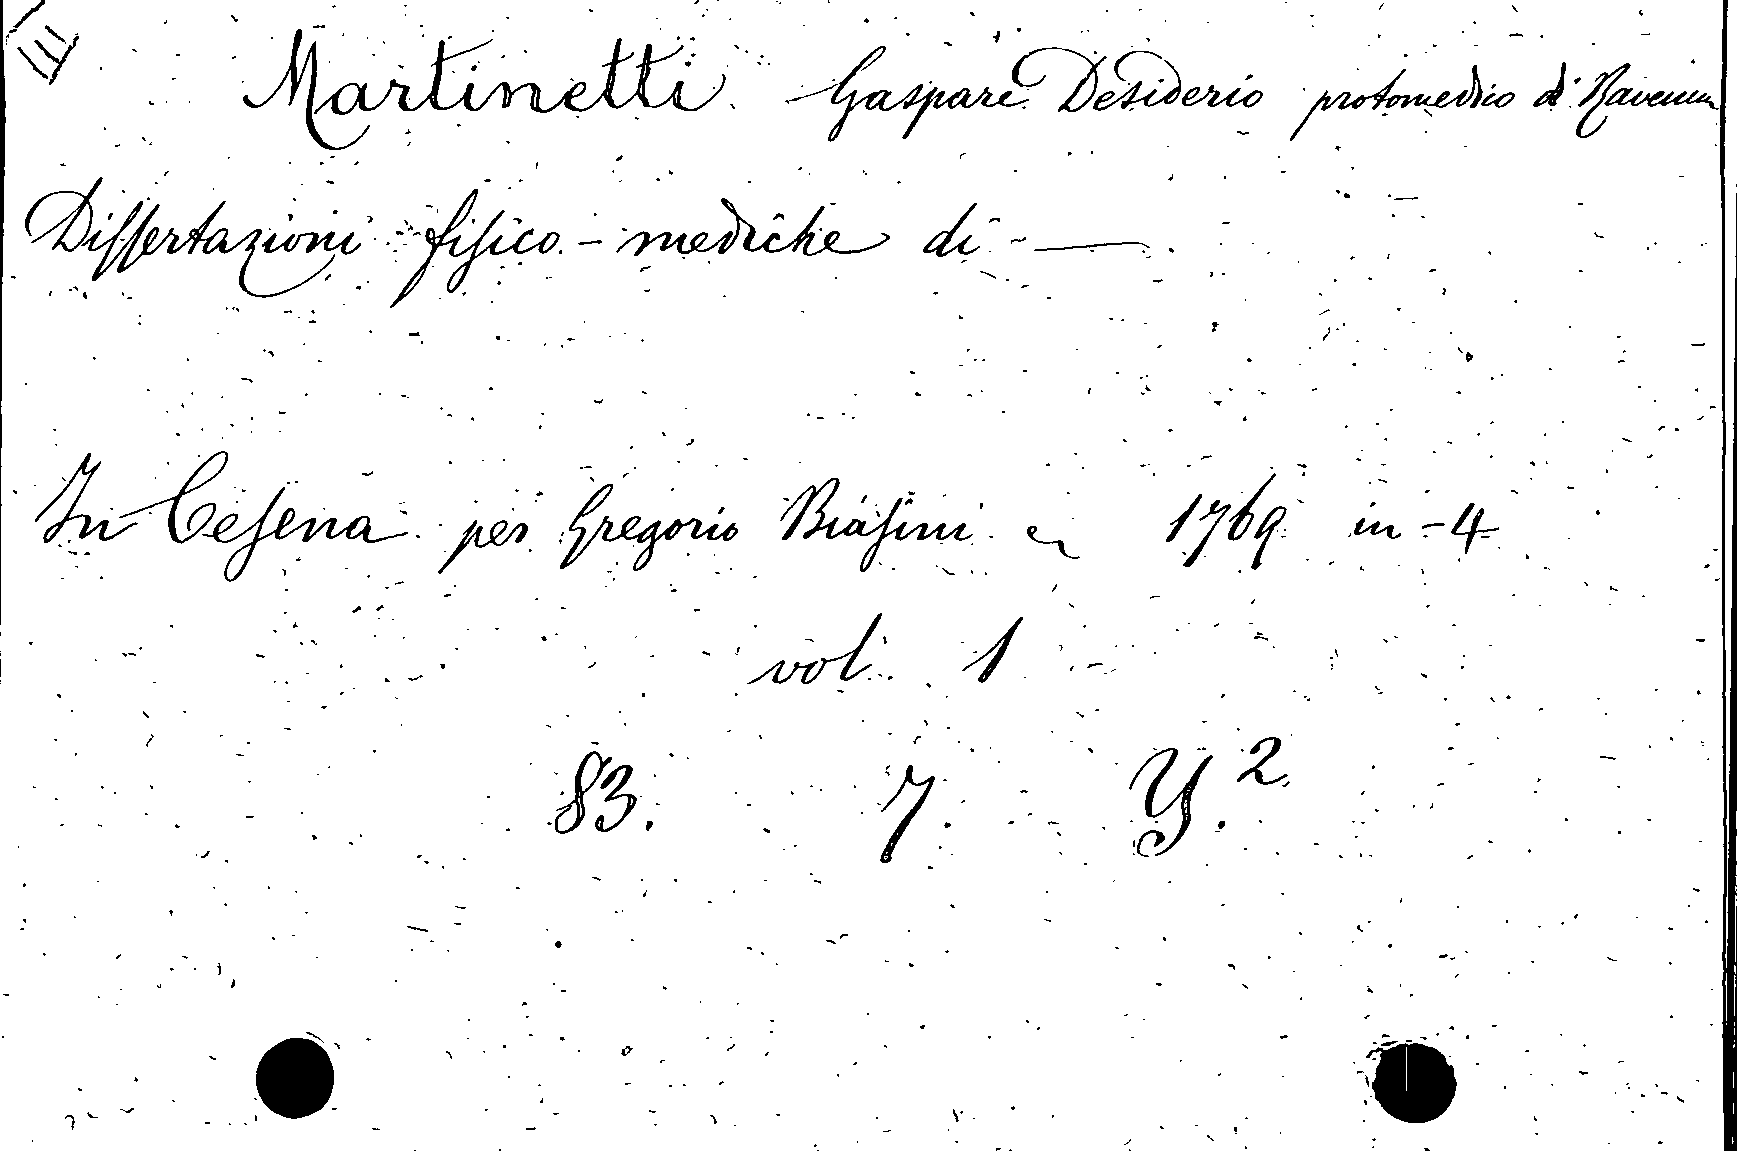 III
Martinetti Gaspare Desiderio protomedico di Ravenna
Dissertazioni fisico-mediche di -——
In Cesena per Gregorio Biasini 1769 in-4
vol. 1
83. 7. Y.²